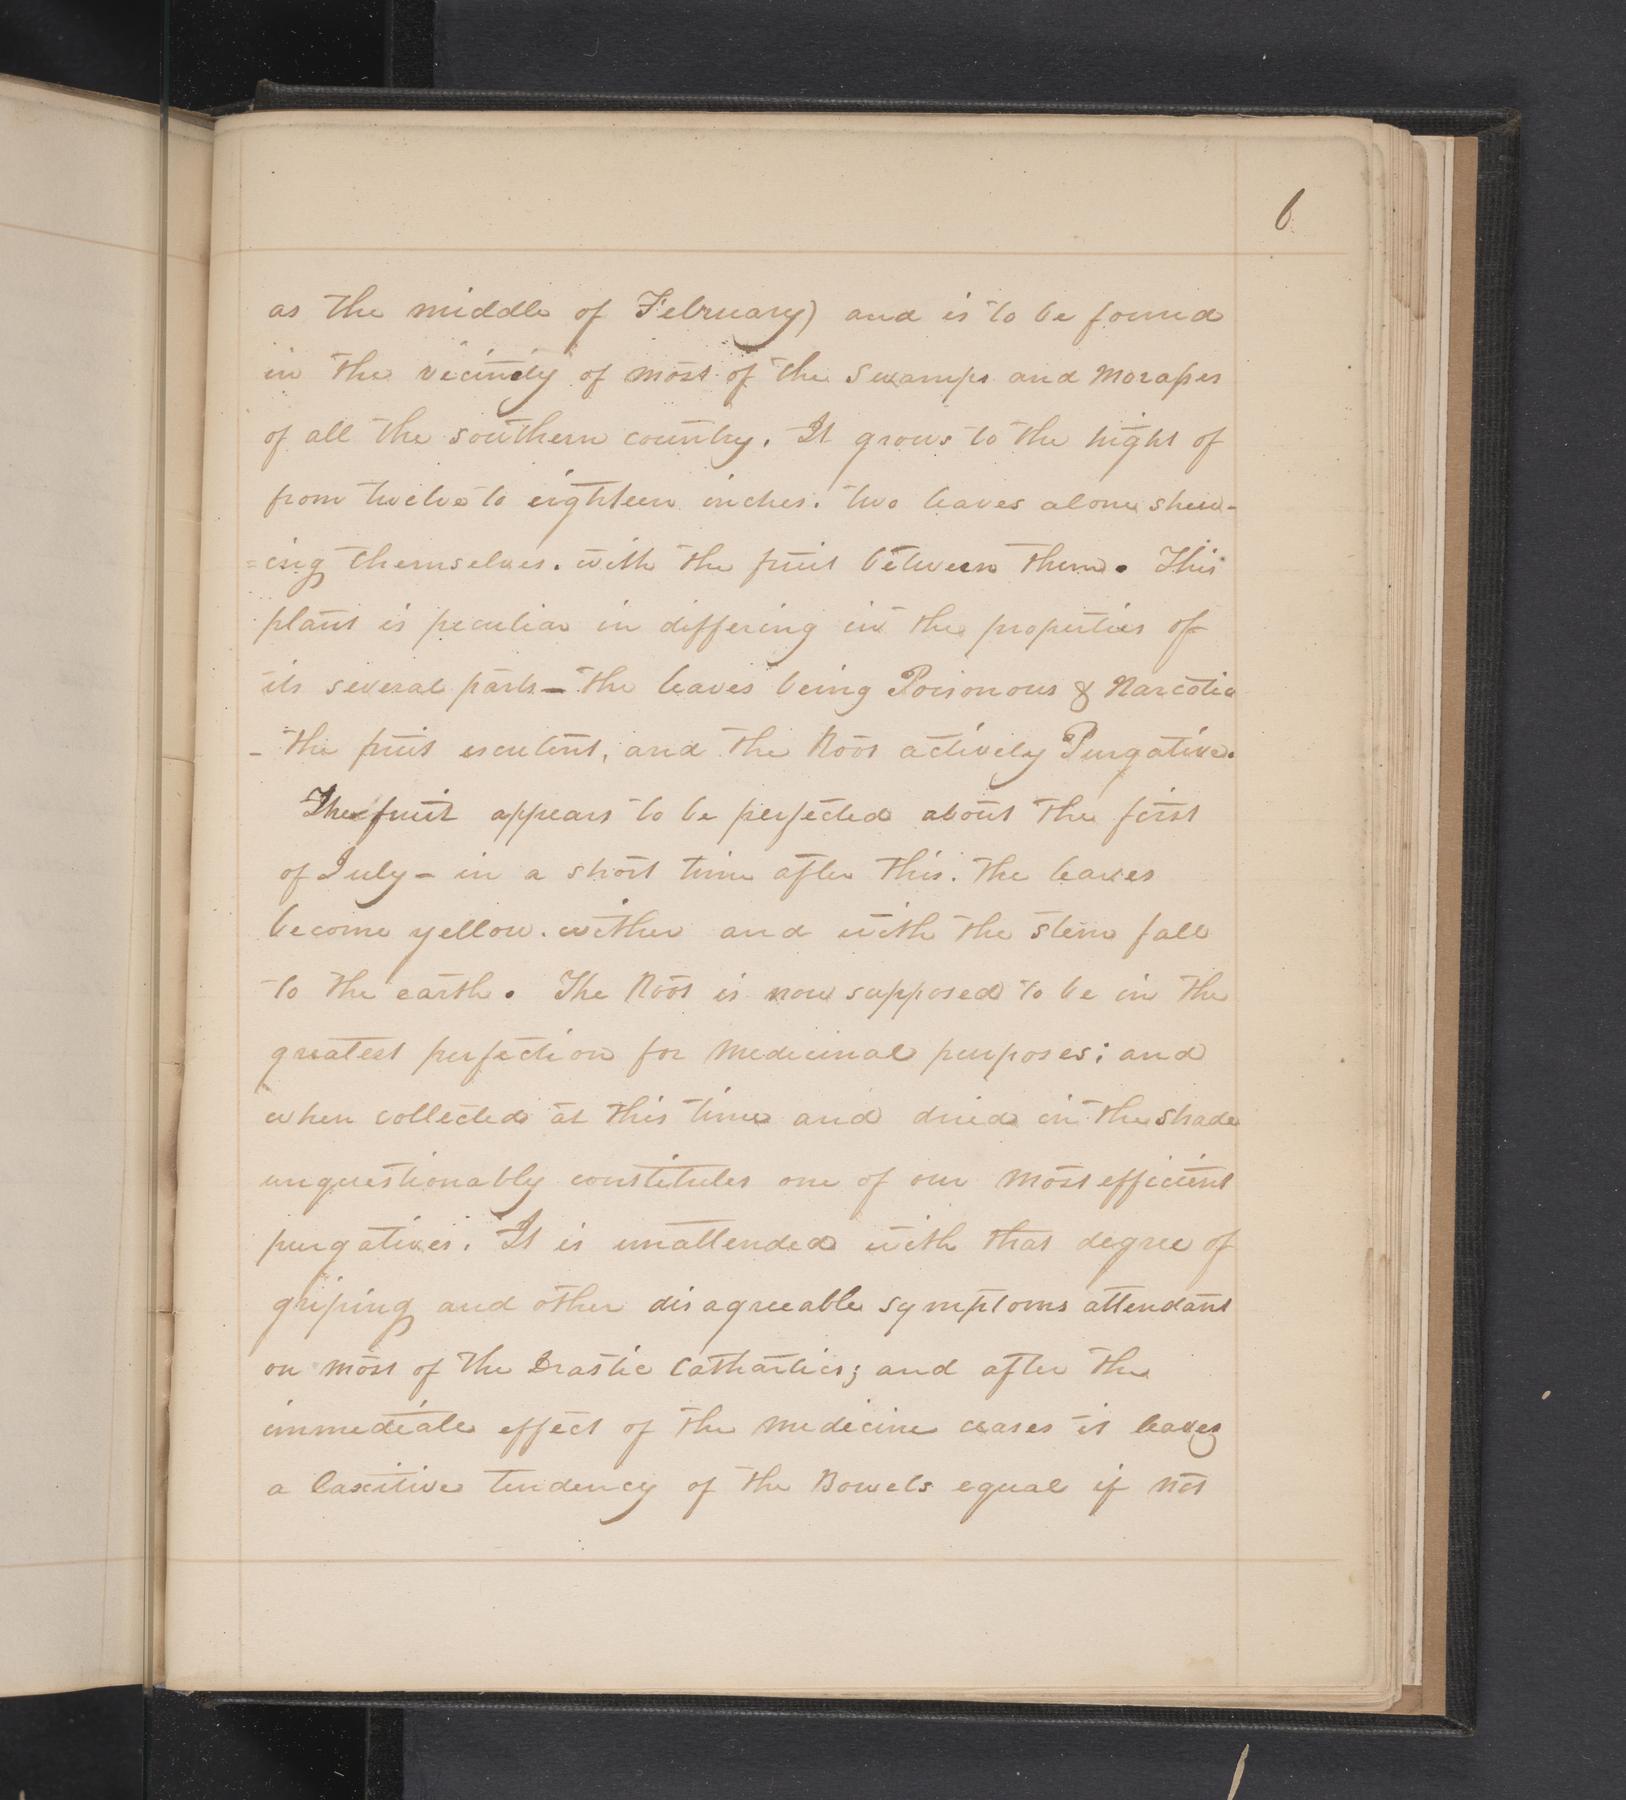 6
as the middle of February) and is to be found
in the vicinity of most of the swamps and Morasses
of all the southern country. It grows to the hight of
from twelve to eighteen inches. two leaves alone shew-
=ing themselves. with the fruit between them. This
plant is peculiar in differing in the properties of
its several parts - the leaves being Poisonous & Narcotic
- the fruit esculent, and the Root actively Purgative.
The fruit appears to be perfected about the first
of July - in a short time after this. the leaves
become yellow. wither and with the stem fall
to the earth. The Root is now supposed to be in the
greatest perfection for Medicinal purposes; and
when collected at this time and dried in the shade
unquestionably constitutes one of our most efficient
purgatives. It is unattended with that degree of
griping and other disagreeable symptoms attendant
on most of the Drastic Cathartics; and after the
immediate effect of the medicine ceases it leaves
a laxitive tendency of the Bowels equal if not